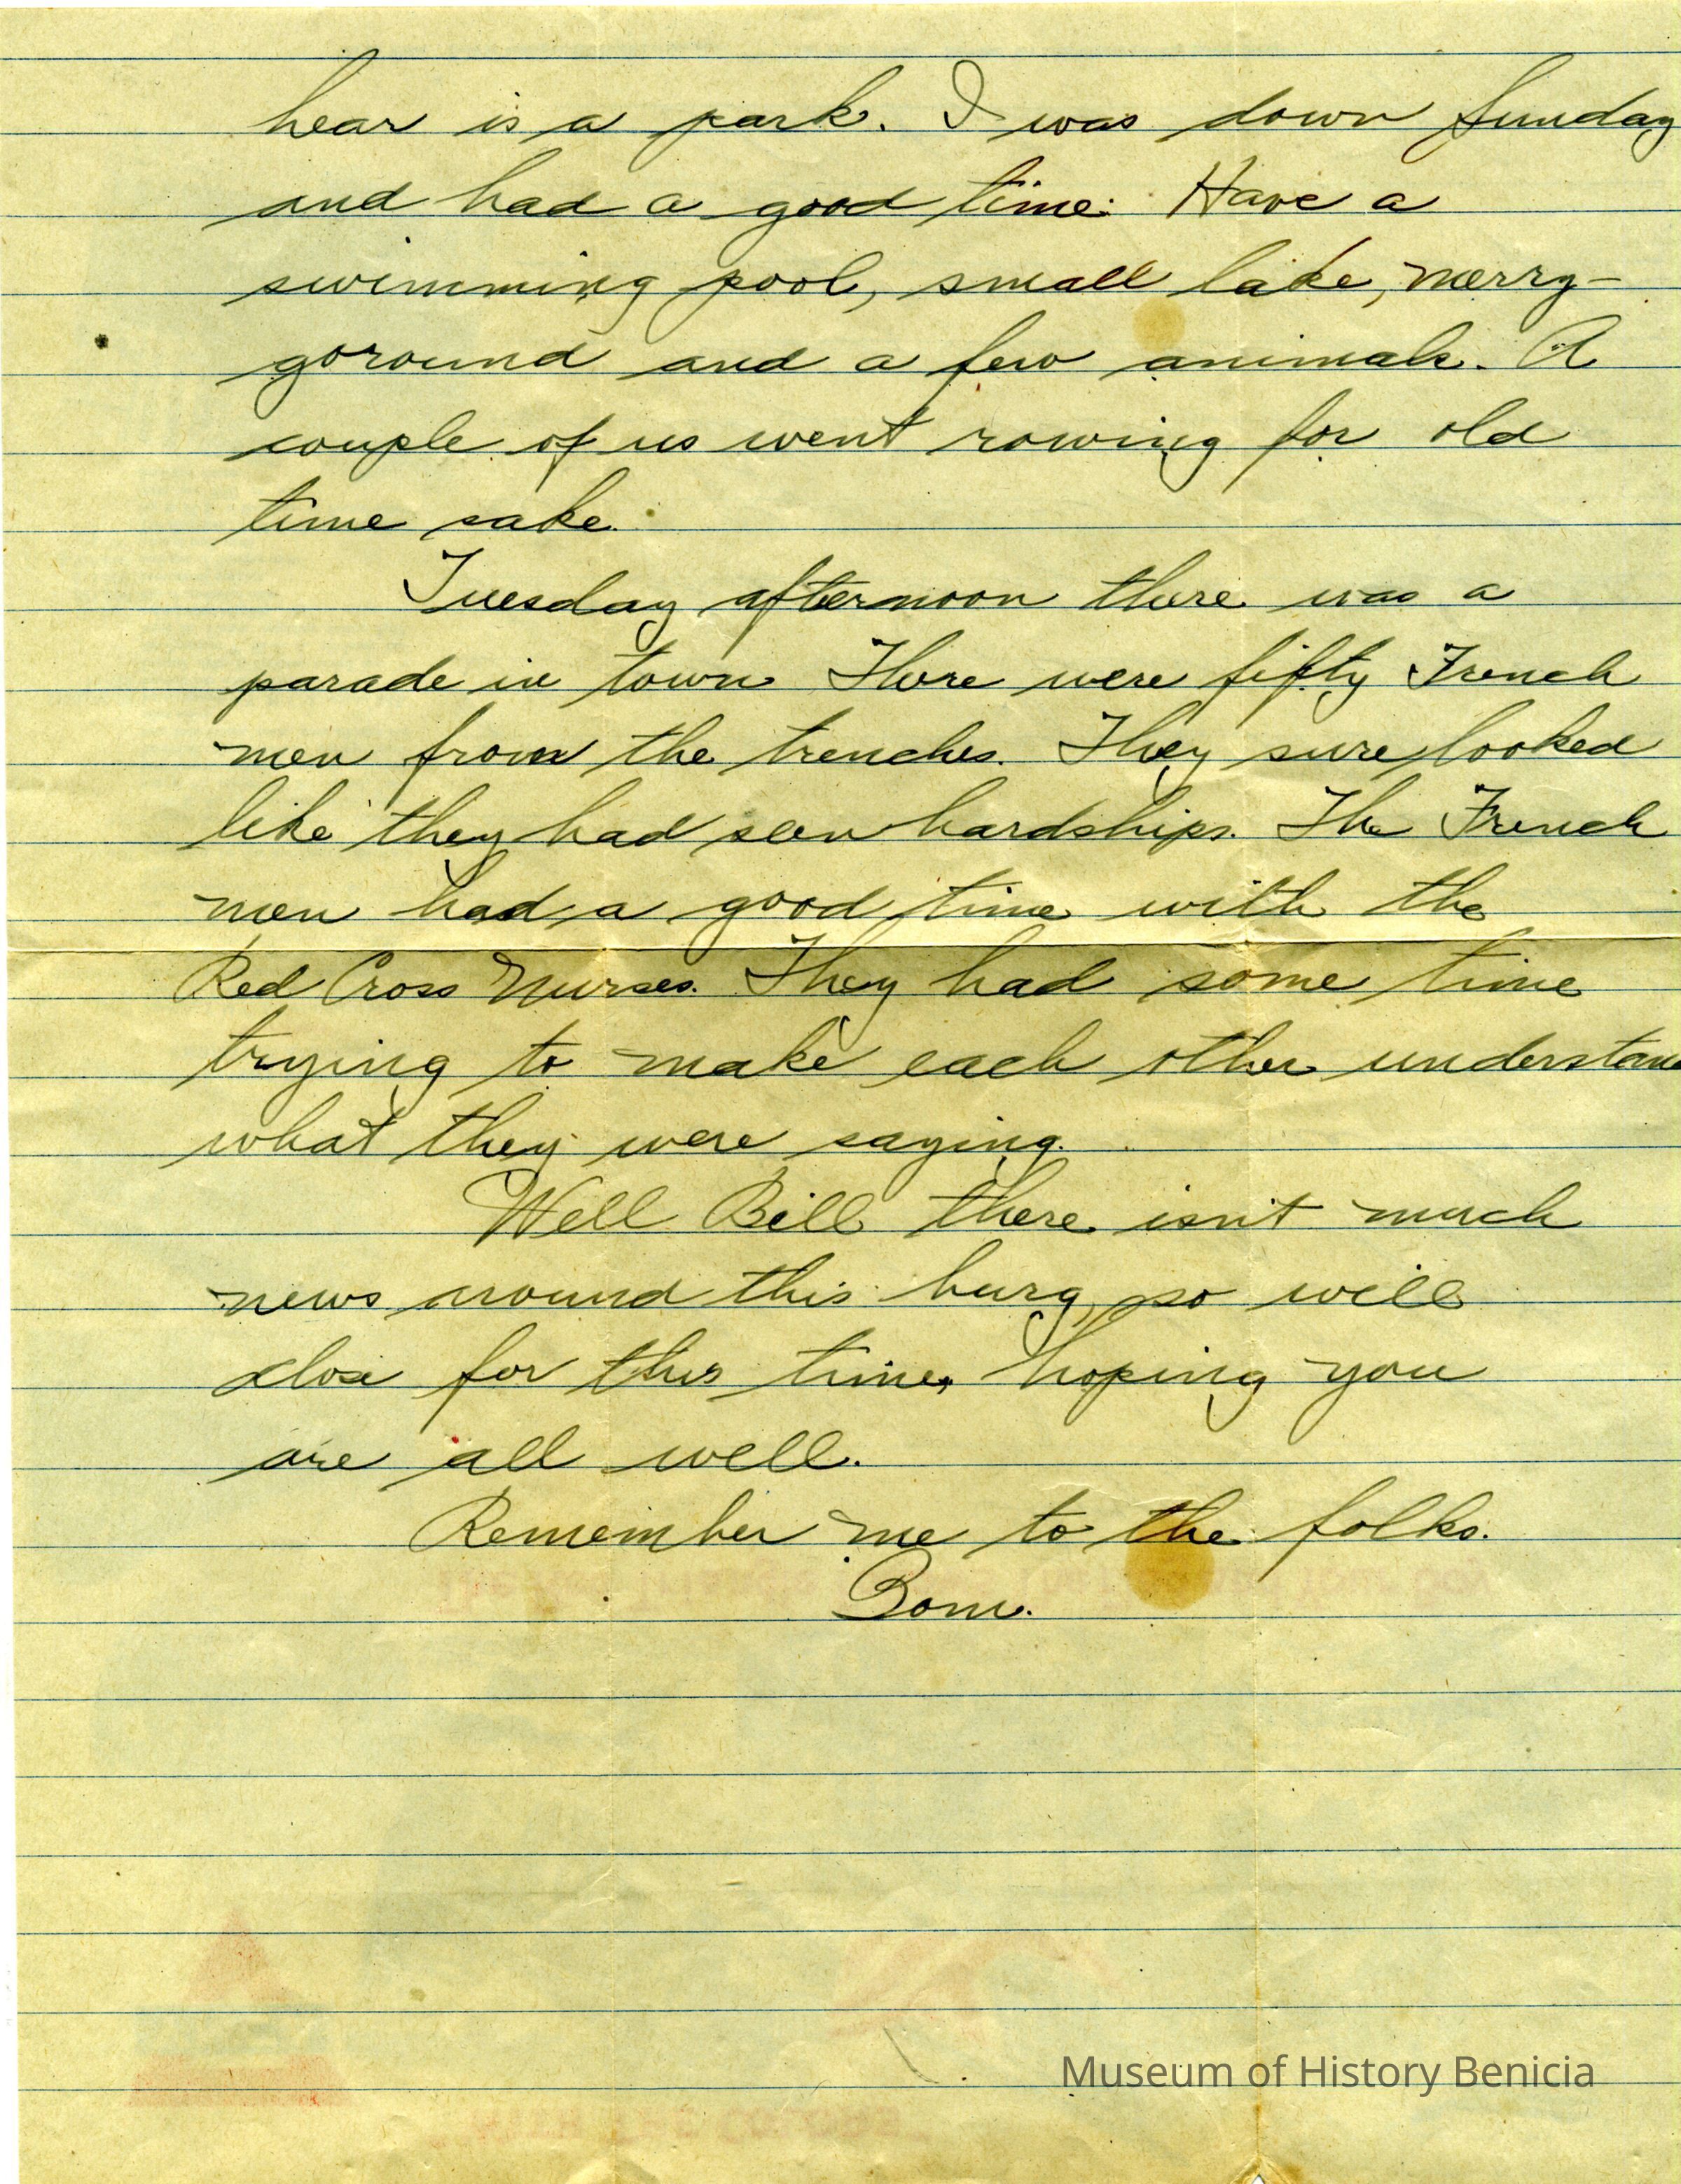 hear is a park. I was down Sunday
and had a good time. Have a
swimming pool, small lake, merry-
goround and a few animals. A
couple of us went rowing for old
time sake.
Tuesday afternoon there was a
parade in town There were fifty French
men from the trenches. They sure looked
like they had seen hardships. The French
men had a good time with the
Red Cross Nurses. They had some time
trying to make each other understand
what they were saying.
Well Bill there isn't much
news around this burg, so will
close for this time, hoping you
are all well.
Remember me to the folks.
Bom.
Museum of History Benicia